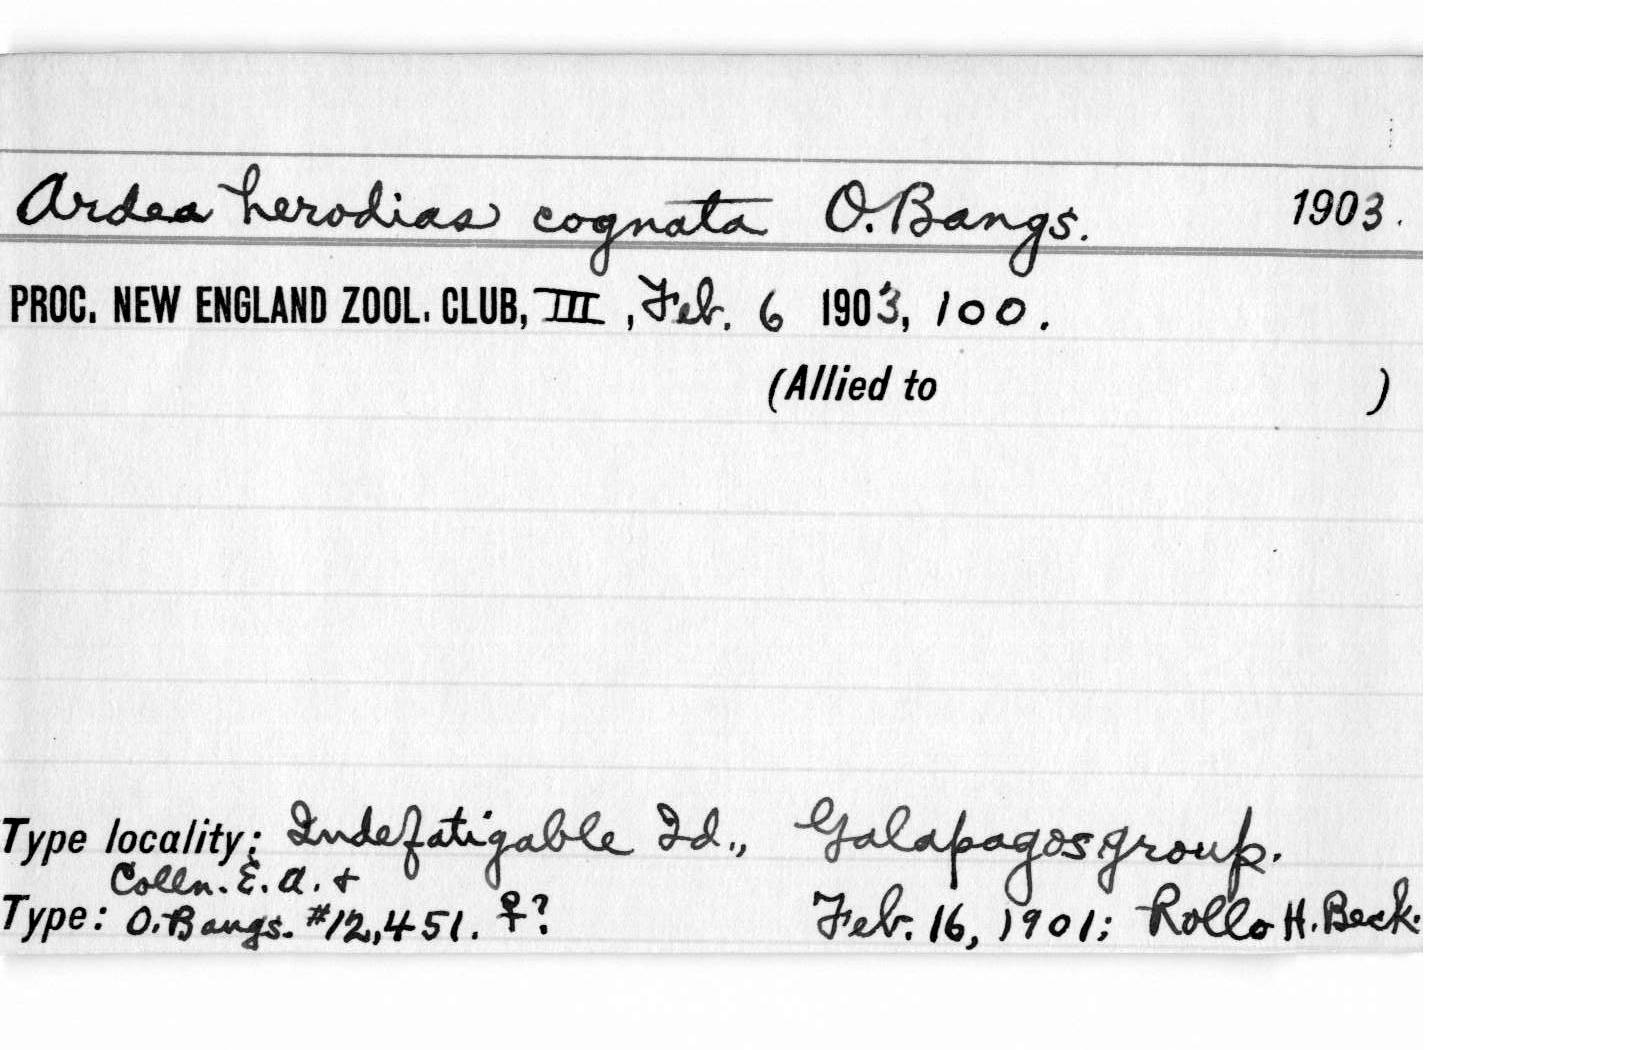 Ardea herodias cognata O. Bangs. 1903.
PROC. NEW ENGLAND ZOOL. CLUB, III, Feb. 6 1903, 100.
(Allied to )
Type locality: Indefatigable Id., Galapagos group.
Colln. E. A. +
Type: O. Bangs. #12,451. ♀? Feb. 16, 1901; Rollo H. Beck.